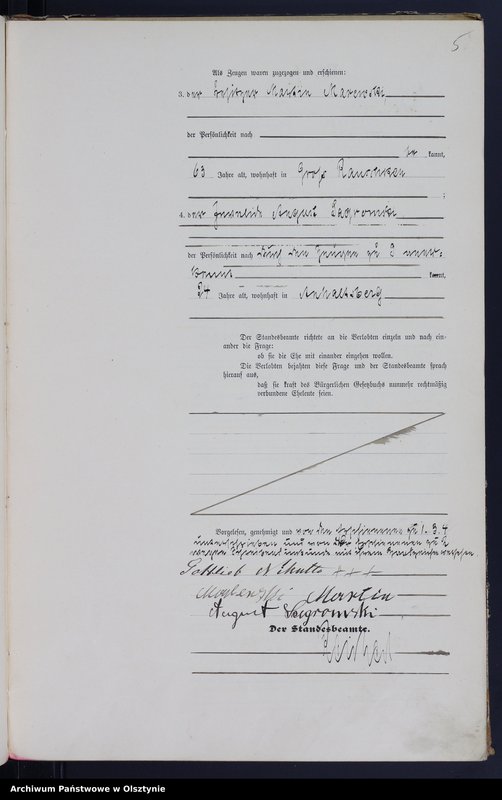 5.
Als Zeugen waren zugezogen und erschienen:
3. der Besitzer Martin
der Persönlichkeit nach
kannt,
63 Jahre alt, wohnhaft in Groß
4. der August
der Persönlichkeit nach durch den Zeugen zu 3
kannt,
24 Jahre alt, wohnhaft in Anhaltsberg
Der Standesbeamte richtete an die Verlobten einzeln und nach ein-
ander die Frage:
ob sie die Ehe mit einander eingehen wollen.
Die Verlobten bejahten diese Frage und der Standesbeamte sprach
hierauf aus,
daß sie kraft des Bürgerlichen Gesetzbuchs nunmehr rechtmäßig
verbundene Eheleute seien.
Vorgelesen, genehmigt und von den Erschienenen zu 1. 3. 4
unterschrieben und von der Erschienenen zu 2
wegen Schreibensunkunde mit ihrem Handzeichen versehen
Gottlieb +++
Martin
August
Der Standesbeamte.
Archiwum Państwowe w Olsztynie